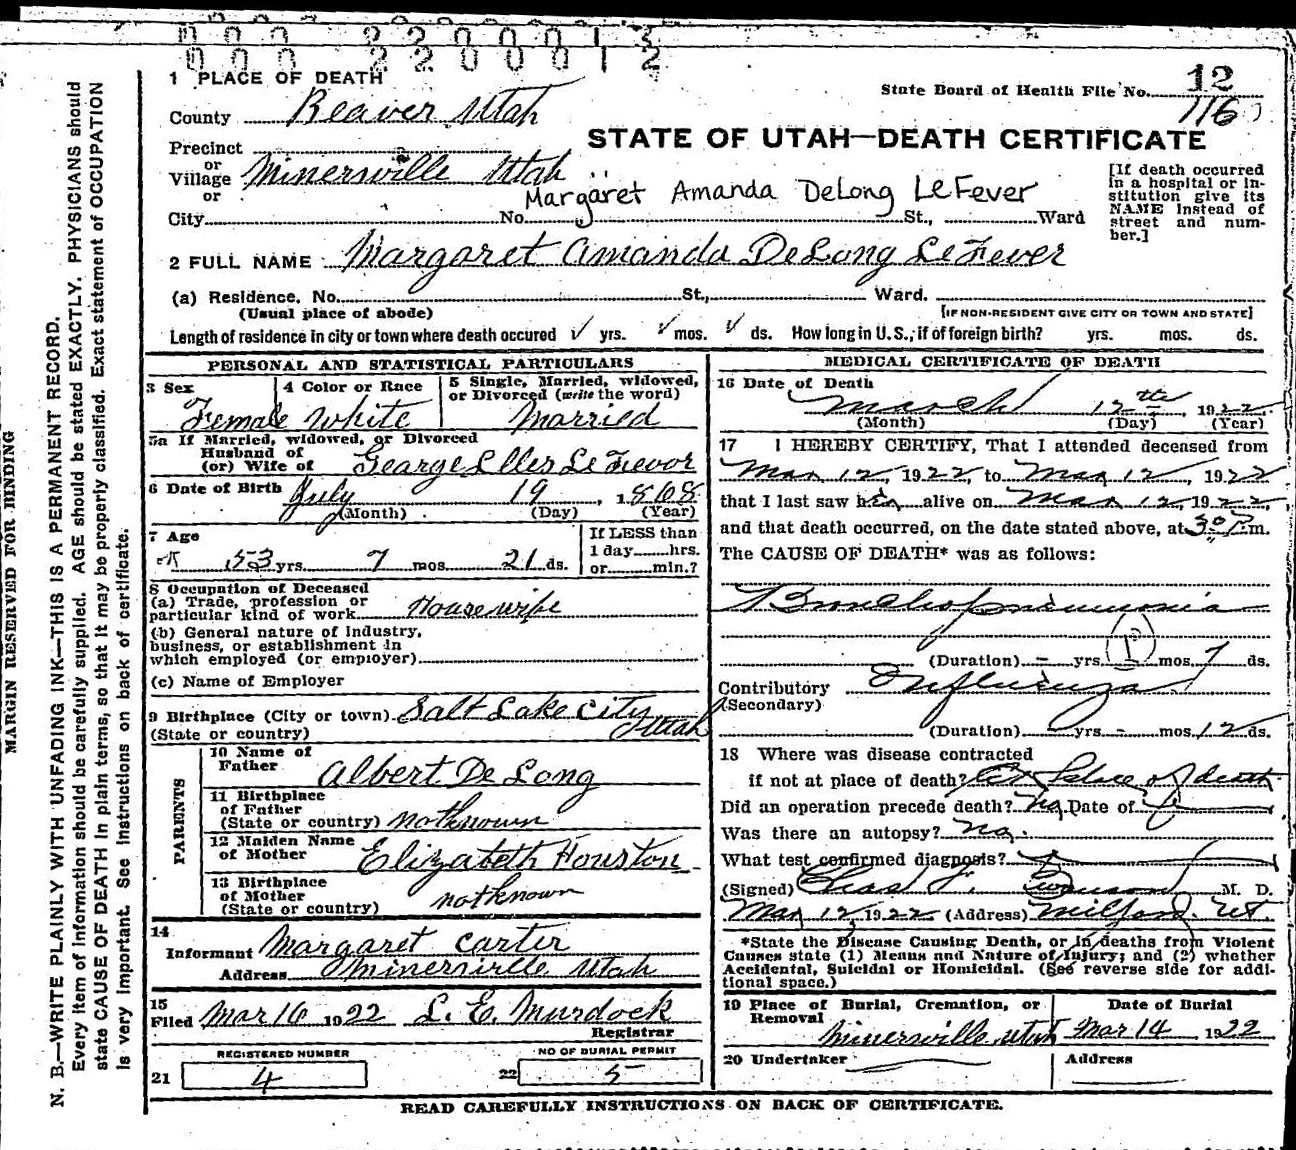 000 2200013
000 2200012
1 PLACE OF DEATH
State Board of Health File No. 12
116
County Beaver Utah
STATE OF UTAH—DEATH CERTIFICATE
Precinct
or
Village Minersville Utah
or
Margaret Amanda DeLong LeFever
City No. St., Ward
[If death occurred in a hospital or institution give its NAME instead of street and number.]
2 FULL NAME Margaret Amanda DeLong LeFever
(a) Residence. No. St., Ward.
(Usual place of abode) [IF NON-RESIDENT GIVE CITY OR TOWN AND STATE]
Length of residence in city or town where death occured √ yrs. √ mos. √ ds. How long in U.S., if of foreign birth? yrs. mos. ds.
PERSONAL AND STATISTICAL PARTICULARS
3 Sex 4 Color or Race 5 Single, Married, widowed,
or Divorced (write the word)
Female White Married
5a If Married, widowed, or Divorced
Husband of
(or) Wife of George Eller LeFevor
6 Date of Birth July 19, 1868
(Month) (Day) (Year)
7 Age If LESS than
53 yrs. 7 mos. 21 ds. 1 day hrs.
or min.?
8 Occupation of Deceased
(a) Trade, profession or
particular kind of work Housewife
(b) General nature of industry,
business, or establishment in
which employed (or employer)
(c) Name of Employer
9 Birthplace (City or town) Salt Lake City
(State or country) Utah
PARENTS
10 Name of
Father Albert De Long
11 Birthplace
of Father
(State or country) not known
12 Maiden Name
of Mother Elizabeth Houston
13 Birthplace
of Mother
(State or country) not known
14
Informant Margaret Carter
Address Minersville Utah
15
Filed Mar 16 1922 L. E. Murdock
Registrar
REGISTERED NUMBER NO OF BURIAL PERMIT
21 4 22 5
MEDICAL CERTIFICATE OF DEATH
16 Date of Death
March 12th, 1922
(Month) (Day) (Year)
17 I HEREBY CERTIFY, That I attended deceased from
Mar 12, 1922, to Mar 12, 1922
that I last saw her alive on Mar 12, 1922,
and that death occurred, on the date stated above, at 3:0 P.m.
The CAUSE OF DEATH* was as follows:
Bronchopneumonia
P
(Duration) - yrs. mos. 7 ds.
Contributory Influenza
(Secondary)
(Duration) - yrs. - mos. 12 ds.
18 Where was disease contracted
if not at place of death? At place of death
Did an operation precede death? No Date of
Was there an autopsy? No.
What test confirmed diagnosis?
(Signed) Chas M. D.
Mar 12, 1922 (Address) Milford. Ut.
*State the Disease Causing Death, or in deaths from Violent
Causes state (1) Means and Nature of Injury; and (2) whether
Accidental, Suicidal or Homicidal. (See reverse side for addi-
tional space.)
19 Place of Burial, Cremation, or Date of Burial
Removal
Minersville Utah Mar 14 1922
20 Undertaker Address
READ CAREFULLY INSTRUCTIONS ON BACK OF CERTIFICATE.
MARGIN RESERVED FOR BINDING
N. B.—WRITE PLAINLY WITH UNFADING INK—THIS IS A PERMANENT RECORD.
Every item of information should be carefully supplied. AGE should be stated EXACTLY. PHYSICIANS should
state CAUSE OF DEATH in plain terms, so that it may be properly classified. Exact statement of OCCUPATION
is very important. See instructions on back of certificate.